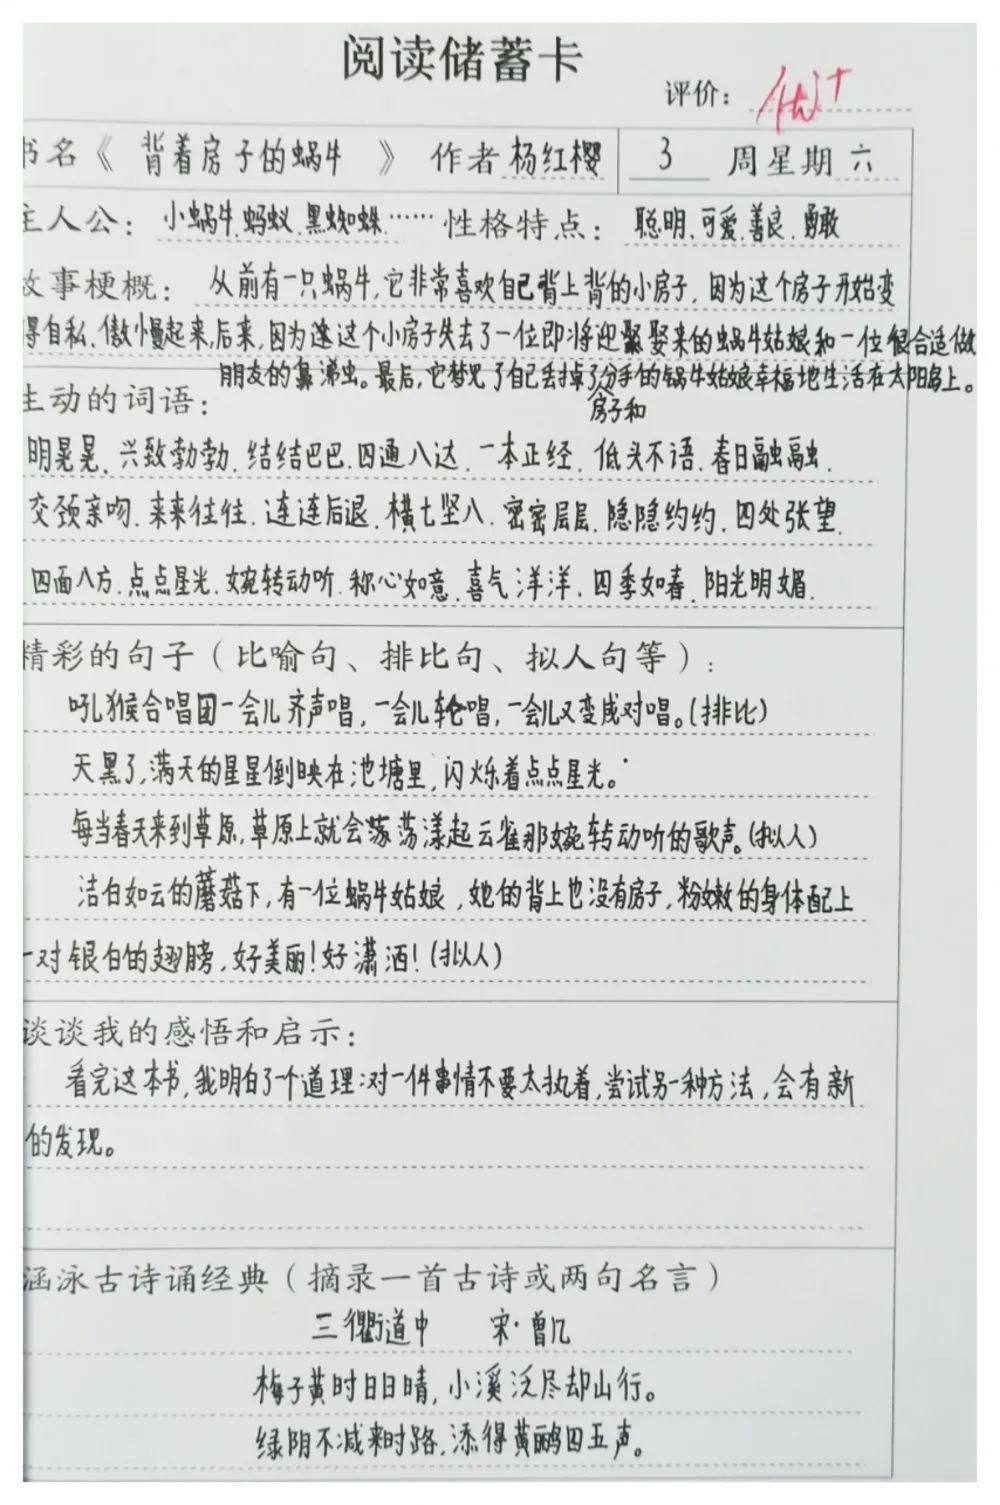 阅读储蓄卡
评价：优+
书名《 背着房子的蜗牛 》 作者 杨红樱 3 周星期六
主人公：小蜗牛、蚂蚁、黑蜘蛛…… 性格特点：聪明、可爱、善良、勇敢
故事梗概：从前有一只蜗牛，它非常喜欢自己背上背的小房子，因为这个房子开始变
得自私、傲慢起来，后来，因为这个小房子失去了一位即将迎娶来的蜗牛姑娘和一位很合适做
朋友的鼻涕虫。最后，它梦见了自己丢掉了房子和分手的蜗牛姑娘幸福地生活在太阳岛上。
生动的词语：
明晃晃、兴致勃勃、结结巴巴、四通八达、一本正经、低头不语、春日融融、
交颈亲吻、来来往往、连连后退、横七竖八、密密层层、隐隐约约、四处张望、
四面八方、点点星光、婉转动听、称心如意、喜气洋洋、四季如春、阳光明媚.
精彩的句子（比喻句、排比句、拟人句等）：
吼猴合唱团一会儿齐声唱，一会儿轮唱，一会儿又变成对唱。(排比)
天黑了，满天的星星倒映在池塘里，闪烁着点点星光。
每当春天来到草原，草原上就会荡漾起云雀那婉转动听的歌声。(拟人)
洁白如云的蘑菇下，有一位蜗牛姑娘，她的背上也没有房子，粉嫩的身体配上
一对银白的翅膀，好美丽！好潇洒！(拟人)
谈谈我的感悟和启示：
看完这本书，我明白了一个道理：对一件事情不要太执着，尝试另一种方法，会有新
的发现。
涵泳古诗诵经典（摘录一首古诗或两句名言）
三衢道中 宋·曾几
梅子黄时日日晴，小溪泛尽却山行。
绿阴不减来时路，添得黄鹂四五声。